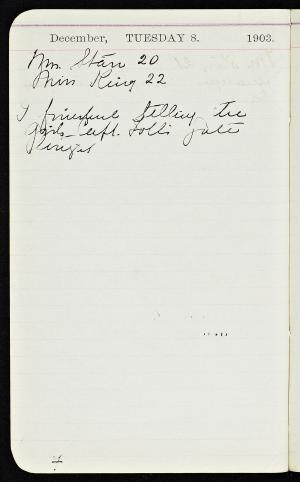 December, TUESDAY 8. 1903.
Mrs. Starr 20
Miss King 22
I finished telling the
girls Capt. Polly